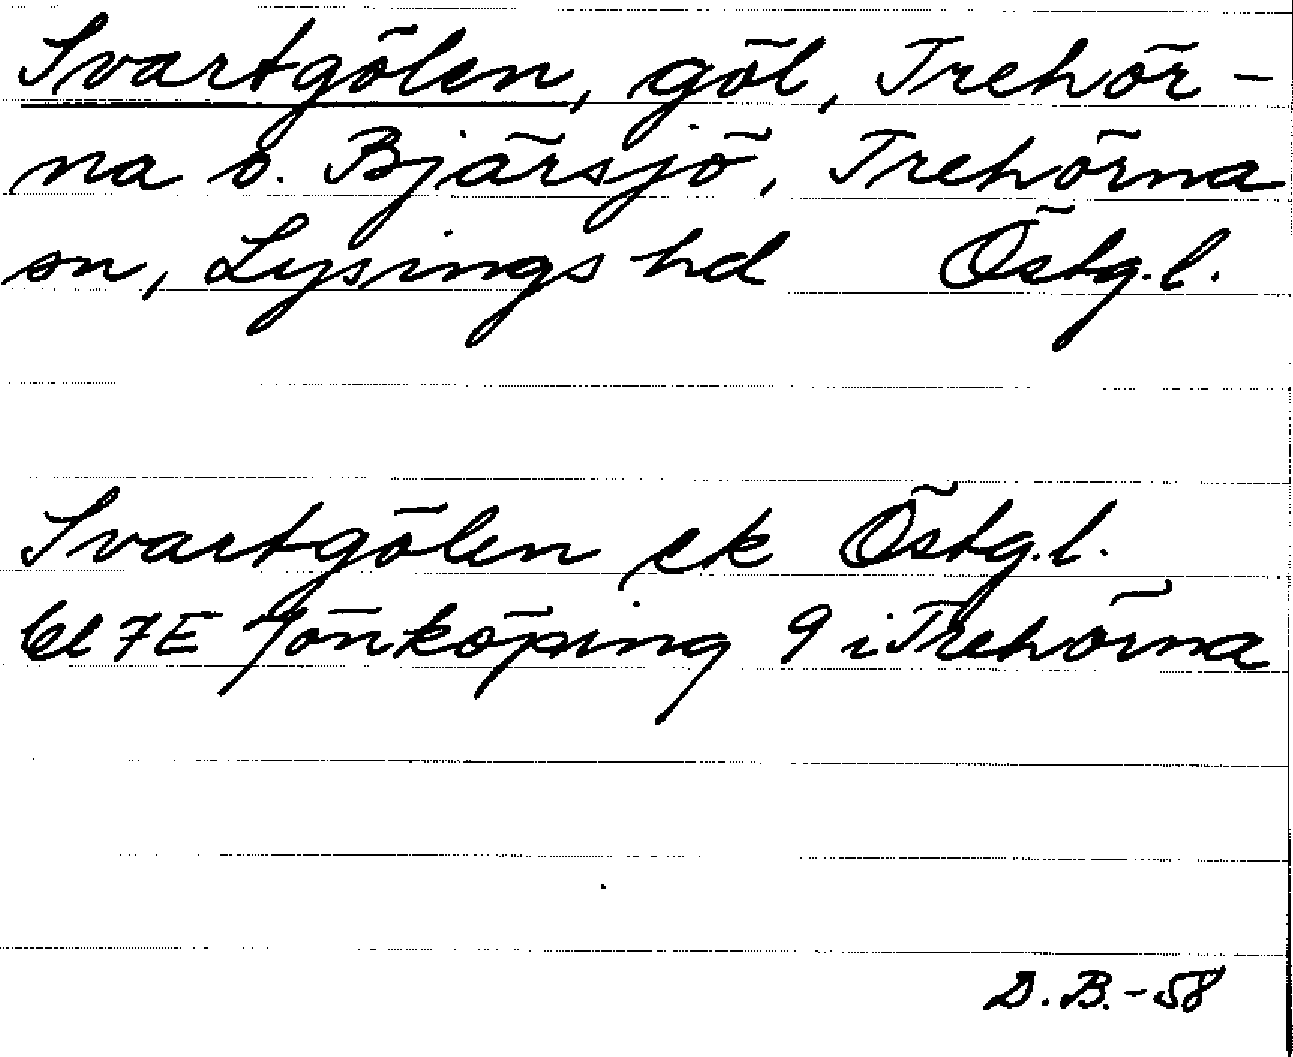 Svartgölen, göl, Trehör-
na o. Bjärsjö, Trehörna
sn, Lysings hd Östg.l.
Svartgölen ek Östg.l.
bl 7E Jönköping 9 i Trehörna
D.B.-58